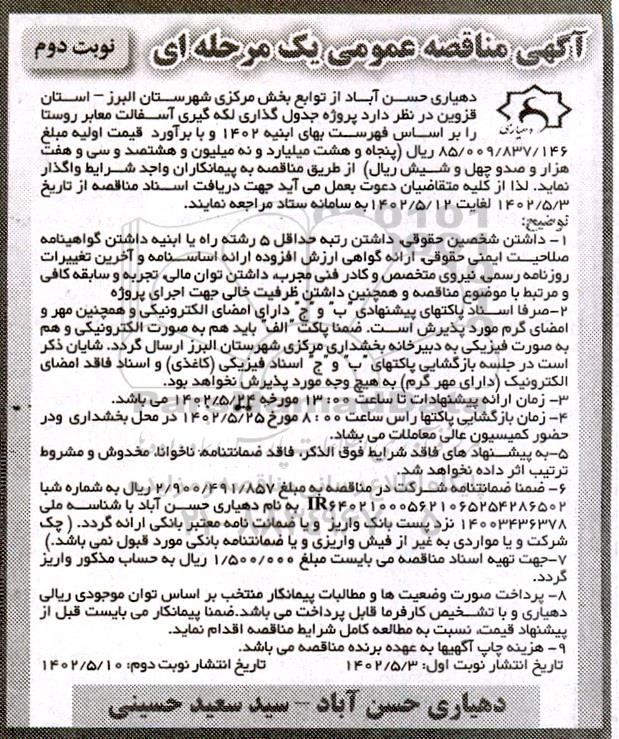 آگهی مناقصه عمومی یک مرحله ای
نوبت دوم
دهیاری
دهیاری حسن آباد از توابع بخش مرکزی شهرستان البرز – استان
قزوین در نظر دارد پروژه جدول گذاری لکه گیری آسفالت معابر روستا
را بر اساس فهرست بهای ابنیه ۱۴۰۲ و با برآورد قیمت اولیه مبلغ
۸۵/۰۰۹/۸۳۷/۱۴۶ ریال (پنجاه و هشت میلیارد و نه میلیون و هشتصد و سی و هفت
هزار و صدو چهل و شیش ریال) از طریق مناقصه به پیمانکاران واجد شرایط واگذار
نماید. لذا از کلیه متقاضیان دعوت بعمل می آید جهت دریافت اسناد مناقصه از تاریخ
۱۴۰۲/۵/۳ لغایت ۱۴۰۲/۵/۱۲به سامانه ستاد مراجعه نمایند.
توضیح:
۱- داشتن شخصین حقوقی، داشتن رتبه حداقل ۵ رشته راه یا ابنیه داشتن گواهینامه
صلاحیت ایمنی حقوقی، ارائه گواهی ارزش افزوده ارائه اساسنامه و آخرین تغییرات
روزنامه رسمی، نیروی متخصص و کادر فنی مجرب، داشتن توان مالی، تجربه و سابقه کافی
و مرتبط با موضوع مناقصه و همچنین داشتن ظرفیت خالی جهت اجرای پروژه
۲-صرفا اسناد پاکتهای پیشنهادی "ب" و "ج" دارای امضای الکترونیکی و همچنین مهر و
امضای گرم مورد پذیرش است. ضمنا پاکت "الف" باید هم به صورت الکترونیکی و هم
به صورت فیزیکی به دبیرخانه بخشداری مرکزی شهرستان البرز ارسال گردد. شایان ذکر
است در جلسه بازگشایی پاکتهای "ب" و "ج" اسناد فیزیکی (کاغذی) و اسناد فاقد امضای
الکترونیک (دارای مهر گرم) به هیچ وجه مورد پذیرش نخواهد بود.
۳- زمان ارائه پیشنهادات تا ساعت ۰۰ : ۱۳ مورخه ۱۴۰۲/۵/۲۴ می باشد.
۴- زمان بازگشایی پاکتها راس ساعت ۰۰ : ۸ مورخ ۱۴۰۲/۵/۲۵ در محل بخشداری ودر
حضور کمیسیون عالی معاملات می بشاد.
۵-به پیشنهاد های فاقد شرایط فوق الذکر، فاقد ضمانتنامه، ناخوانا، مخدوش و مشروط
ترتیب اثر داده نخواهد شد.
۶- ضمنا ضمانتنامه شرکت در مناقصه به مبلغ ۲/۹۰۰/۴۹۱/۸۵۷ ریال به شماره شبا
IR۶۴۰۲۱۰۰۰۵۶۲۱۰۶۵۲۵۴۲۸۶۵۰۲ به نام دهیاری حسن آباد با شناسه ملی
۱۴۰۰۳۴۳۶۳۷۸ نزد پست بانک واریز و یا ضمانت نامه معتبر بانکی ارائه گردد. ( چک
شرکت و یا مواردی به غیر از فیش واریزی و یا ضمانتنامه بانکی مورد قبول نمی باشد.)
۷-جهت تهیه اسناد مناقصه می بایست مبلغ ۱/۵۰۰/۰۰۰ ریال به حساب مذکور واریز
گردد.
۸- پرداخت صورت وضعیت ها و مطالبات پیمانکار منتخب بر اساس توان موجودی ریالی
دهیاری و با تشخیص کارفرما قابل پرداخت می باشد.ضمنا پیمانکار می بایست قبل از
پیشنهاد قیمت، نسبت به مطالعه کامل شرایط مناقصه اقدام نماید.
۹- هزینه چاپ آگهیها به عهده برنده مناقصه می باشد.
تاریخ انتشار نوبت اول: ۱۴۰۲/۵/۳ تاریخ انتشار نوبت دوم: ۱۴۰۲/۵/۱۰
دهیاری حسن آباد – سید سعید حسینی